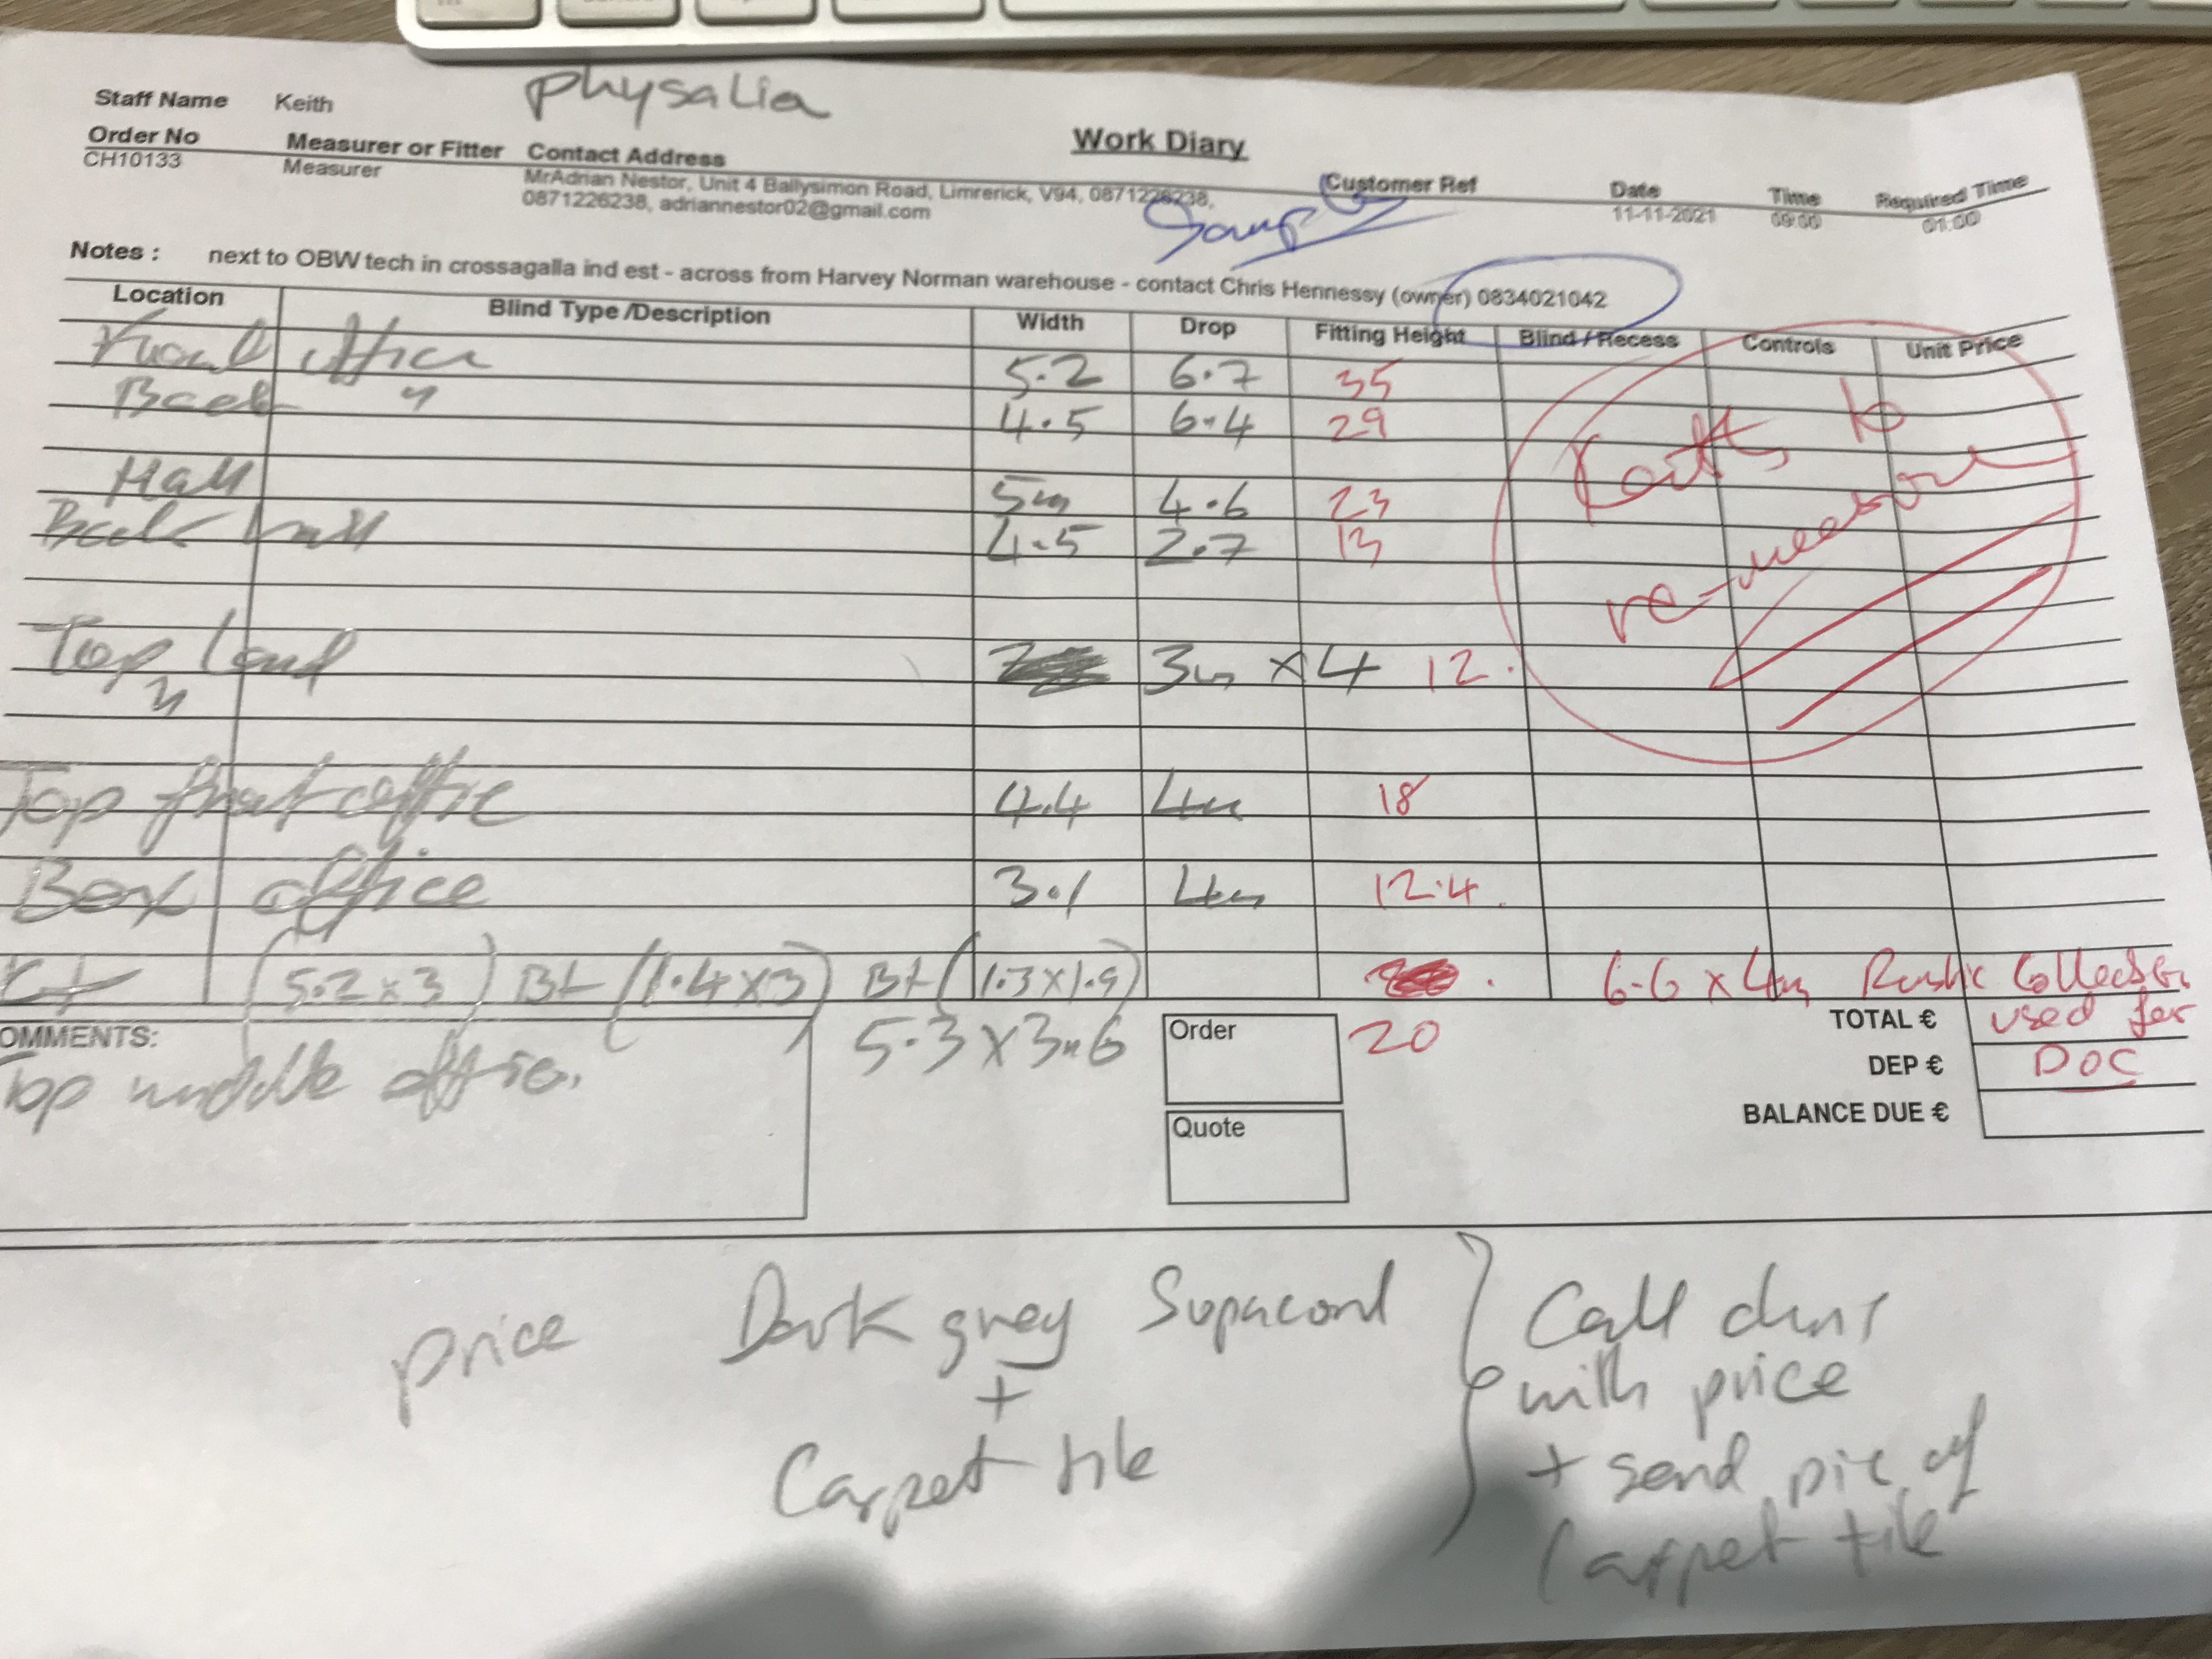 physalia
Staff Name Keith
Work Diary
Order No Measurer or Fitter Contact Address Customer Ref Date Time Required Time
CH10133 Measurer MrAdrian Nestor, Unit 4 Ballysimon Road, Limrerick, V94, 0871226238, 11-11-2021 09:00 01:00
0871226238, adriannestor02@gmail.com
Notes : next to OBW tech in crossagalla ind est - across from Harvey Norman warehouse - contact Chris Hennessy (owner) 0834021042
Location Blind Type /Description Width Drop Fitting Height Blind / Recess Controls Unit Price
Front office 5.2 6.7 35
Back " 4.5 6.4 29
Keith to
re-measure
Hall 5m 4.6 23
Back hall 4.5 2.7 13
Top land 3m x 4 12.
Top front office 4.4 4m 18
Box office 3.1 4m 12.4.
(5.2 x 3) (1.4 x 3) (1.3 x 1.9)
6.6 x 4m Rustic Collection
used for
DOC
OMMENTS:
Top middle office. 5.3 x 3.6 20
Order
Quote
TOTAL €
DEP €
BALANCE DUE €
price Dark grey Supacord
+
Carpet tile
Call chris
with price
+ send pic of
Carpet tile